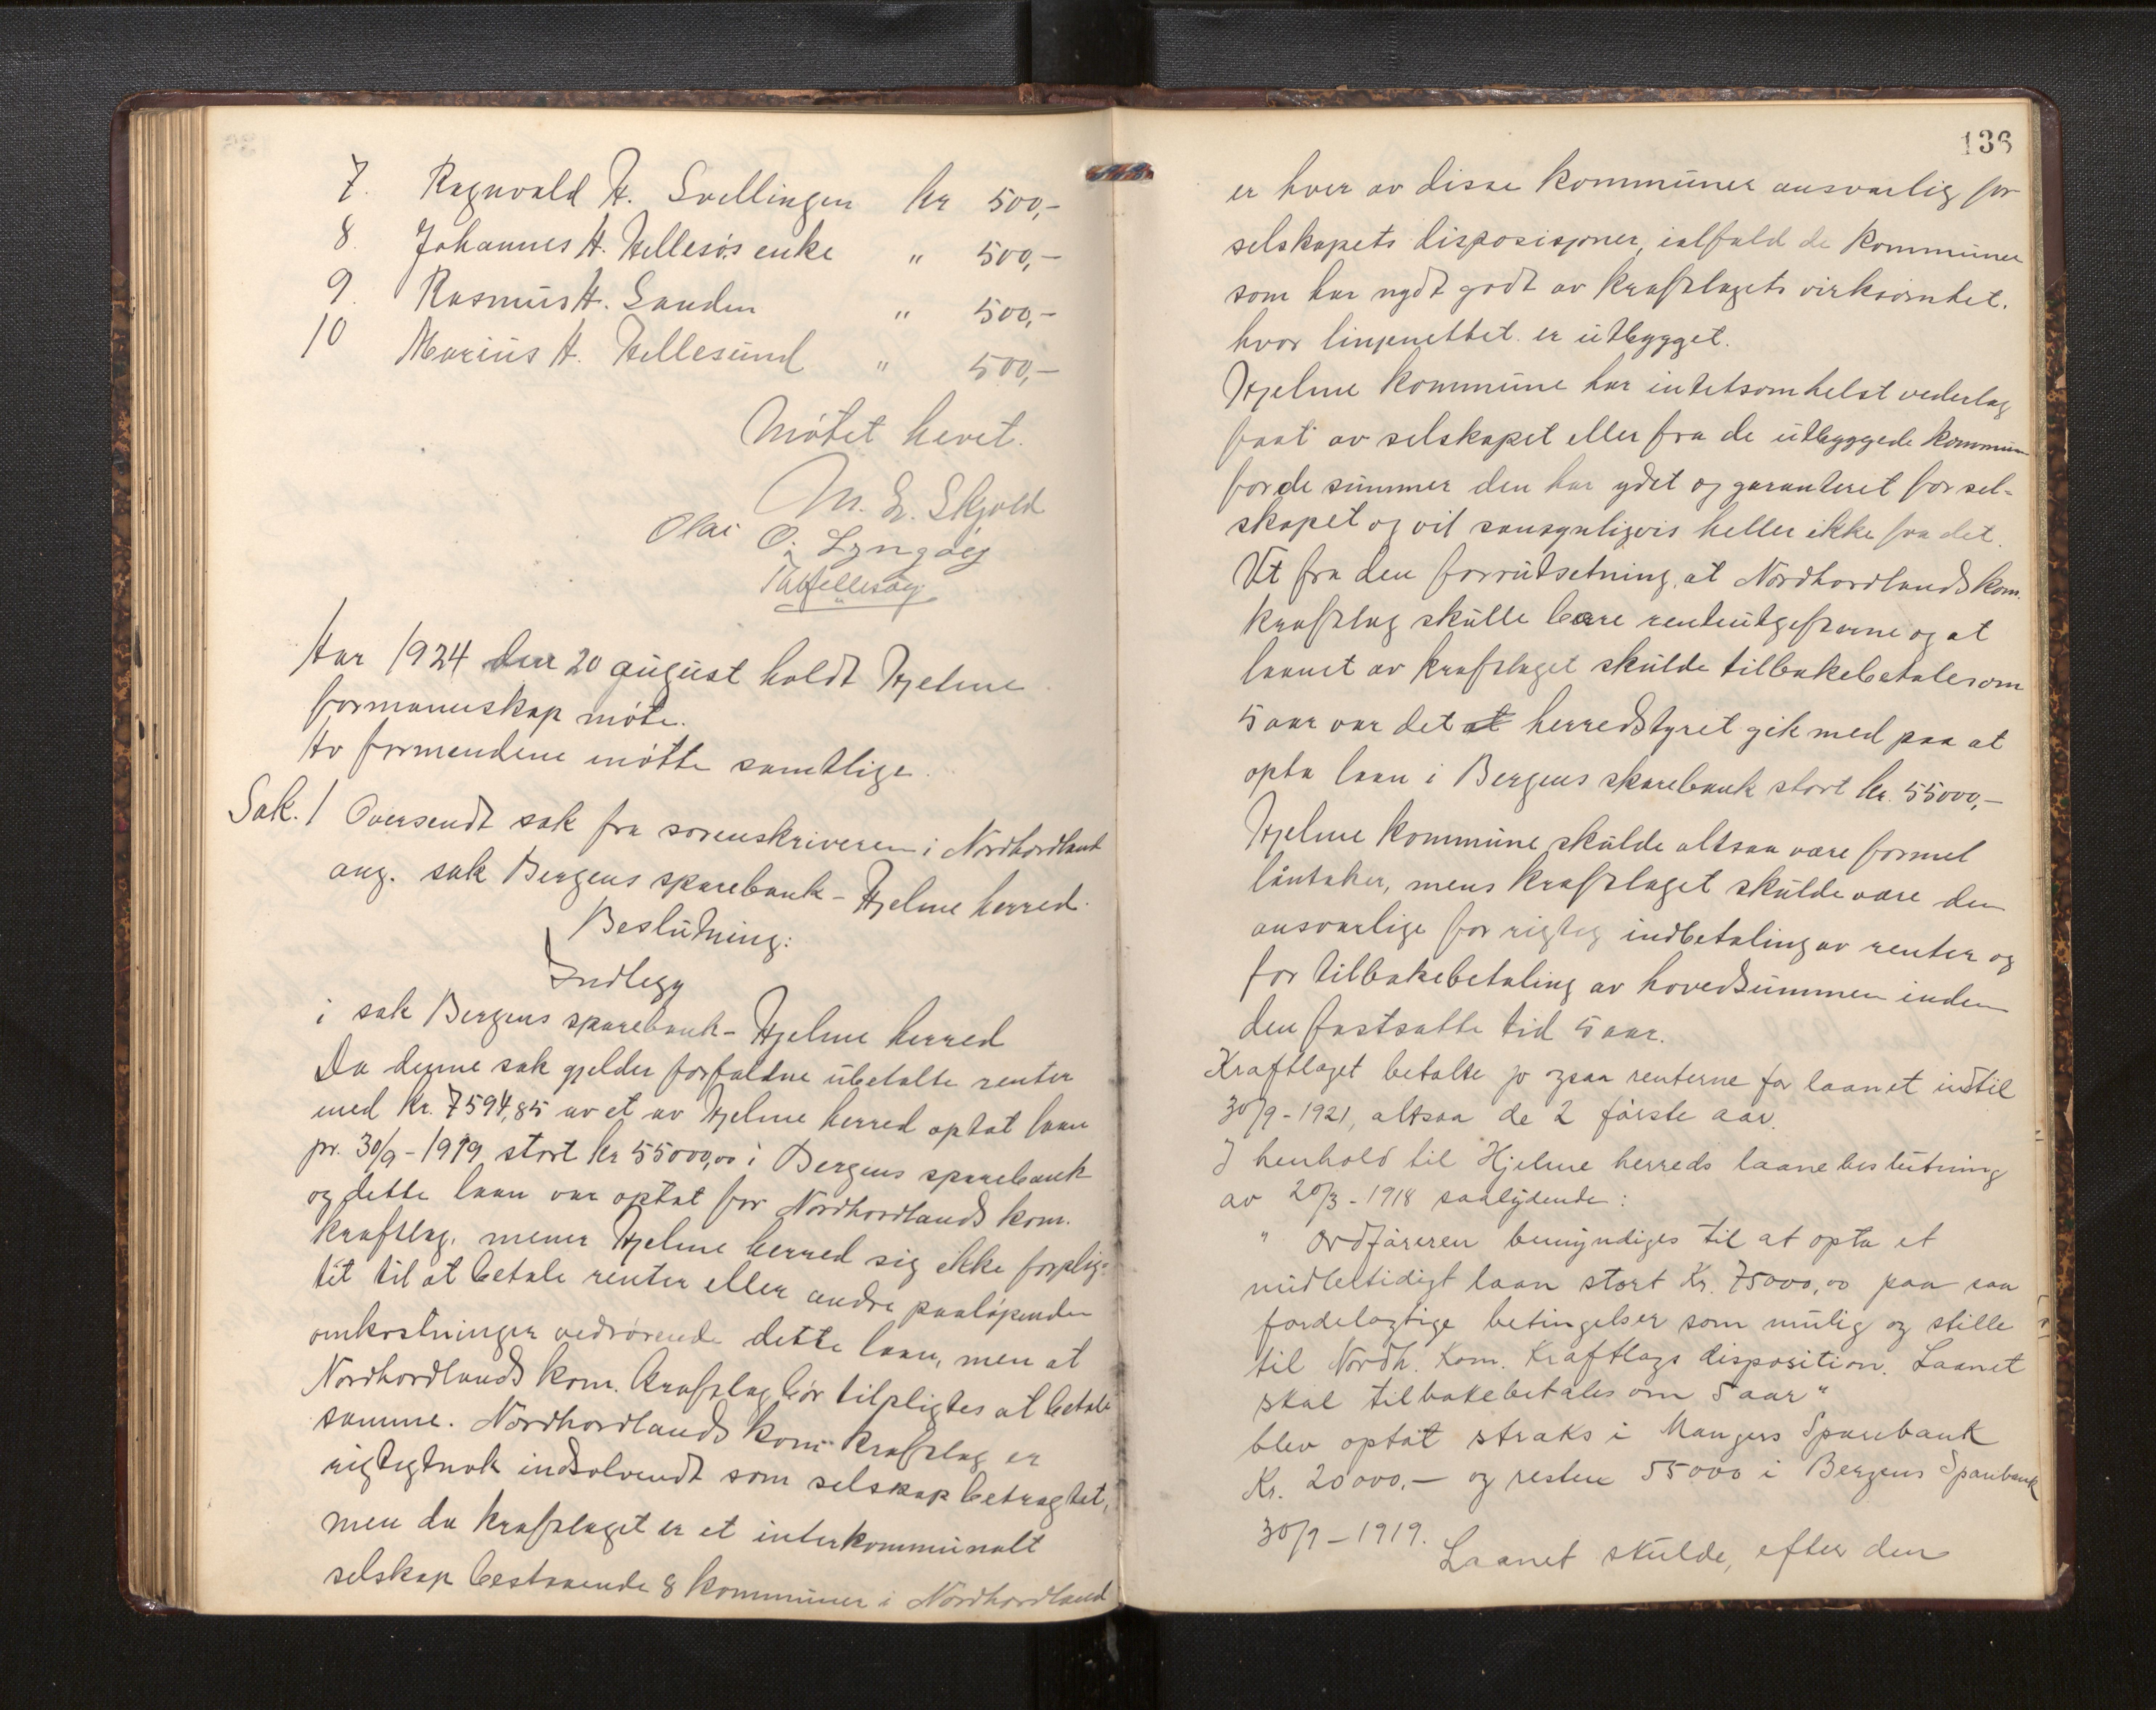 7. Ragnvald H. Svellingen kr 500,-
8. Johannes H. Hellesøs enke " 500,-
9. Rasmus H. Sanden " 500,-
10 Marius H. Hellesund " 500,-
Møtet hevet.
M. E. Skjold
Olai O. Lyngøy
Aar 1924 den 20 august holdt Hjelme
formannskap møte.
Av formendene møtte samtlige.
Sak. 1 Oversendt sak fra sorenskriveren i Nordhordland
ang. sak Bergens sparebank - Hjelme herred.
Beslutning:
Indlegg
i sak Bergens sparebank - Hjelme herred
Da denne sak gjelder forfaldne ubetalte renter
med kr. 7594,85 av et av Hjelme herred optat laan
pr. 30/9 - 1919 stort kr 55000,00 i Bergens sparebank
og dette laan var optat for Nordhordlands kom.
kraftlag. mener Hjelme herred sig ikke forplig-
tet til at betale renter eller andre paaløpende
omkostninger vedrørende dette laan, men at
Nordhordlands kom. kraftlag bør tilpligtes at betale
samme. Nordhordlands kom. kraftlag er
rigtignok indsolvendt som selskap betragtet,
men da kraftlaget er et interkommunalt
selskap bestaaende 8 kommuner i Nordhordland
136
er hver av disse kommuner ansvarlig for
selskapets disposisjoner, ialfald de kommuner
som har nydt godt av kraftlagets virksomhet.
hvor linjenettet er utbygget.
Hjelme kommune har intetsomhelst vederlag
faat av selskapet eller fra de utbyggede kommuner
for de summer den har ydet og garanteret for sel-
skapet og vil sansynligvis heller ikke faa det.
Ut fra den forrutsetning, at Nordhordlands kom.
kraftlag skulle bære renteutgifterne og at
laanet av kraftlaget skulde tilbakebetales om
5 aar var det at herredstyret gik med paa at
opta laan i Bergens sparebank stort kr. 55000,-
Hjelme kommune skulde altsaa være formel
låntaker, mens kraftlaget skulde være den
ansvarlige for rigtig indbetaling av renter og
for tilbakebetaling av hovedsummen inden
den fastsatte tid 5 aar.
Kraftlaget betalte jo ogsaa renterne for laanet indtil
30/9 - 1921, altsaa de 2 første aar.
I henhold til Hjelme herreds laanebeslutning
av 20/3 - 1918 saalydende:
" Ordføreren bemyndiges til at opta et
midlertidigt laan stort Kr. 75000,00 paa saa
fordelagtige betingelser som mulig og stille
til Nordh. Kom. Kraftlags disposition. Laanet
skal tilbakebetales om 5 aar"
blev optat straks i Mangers Sparebank
Kr. 20000.- og resten 55000 i Bergens Sparebank
30/9 - 1919. Laanet skulde, efter den